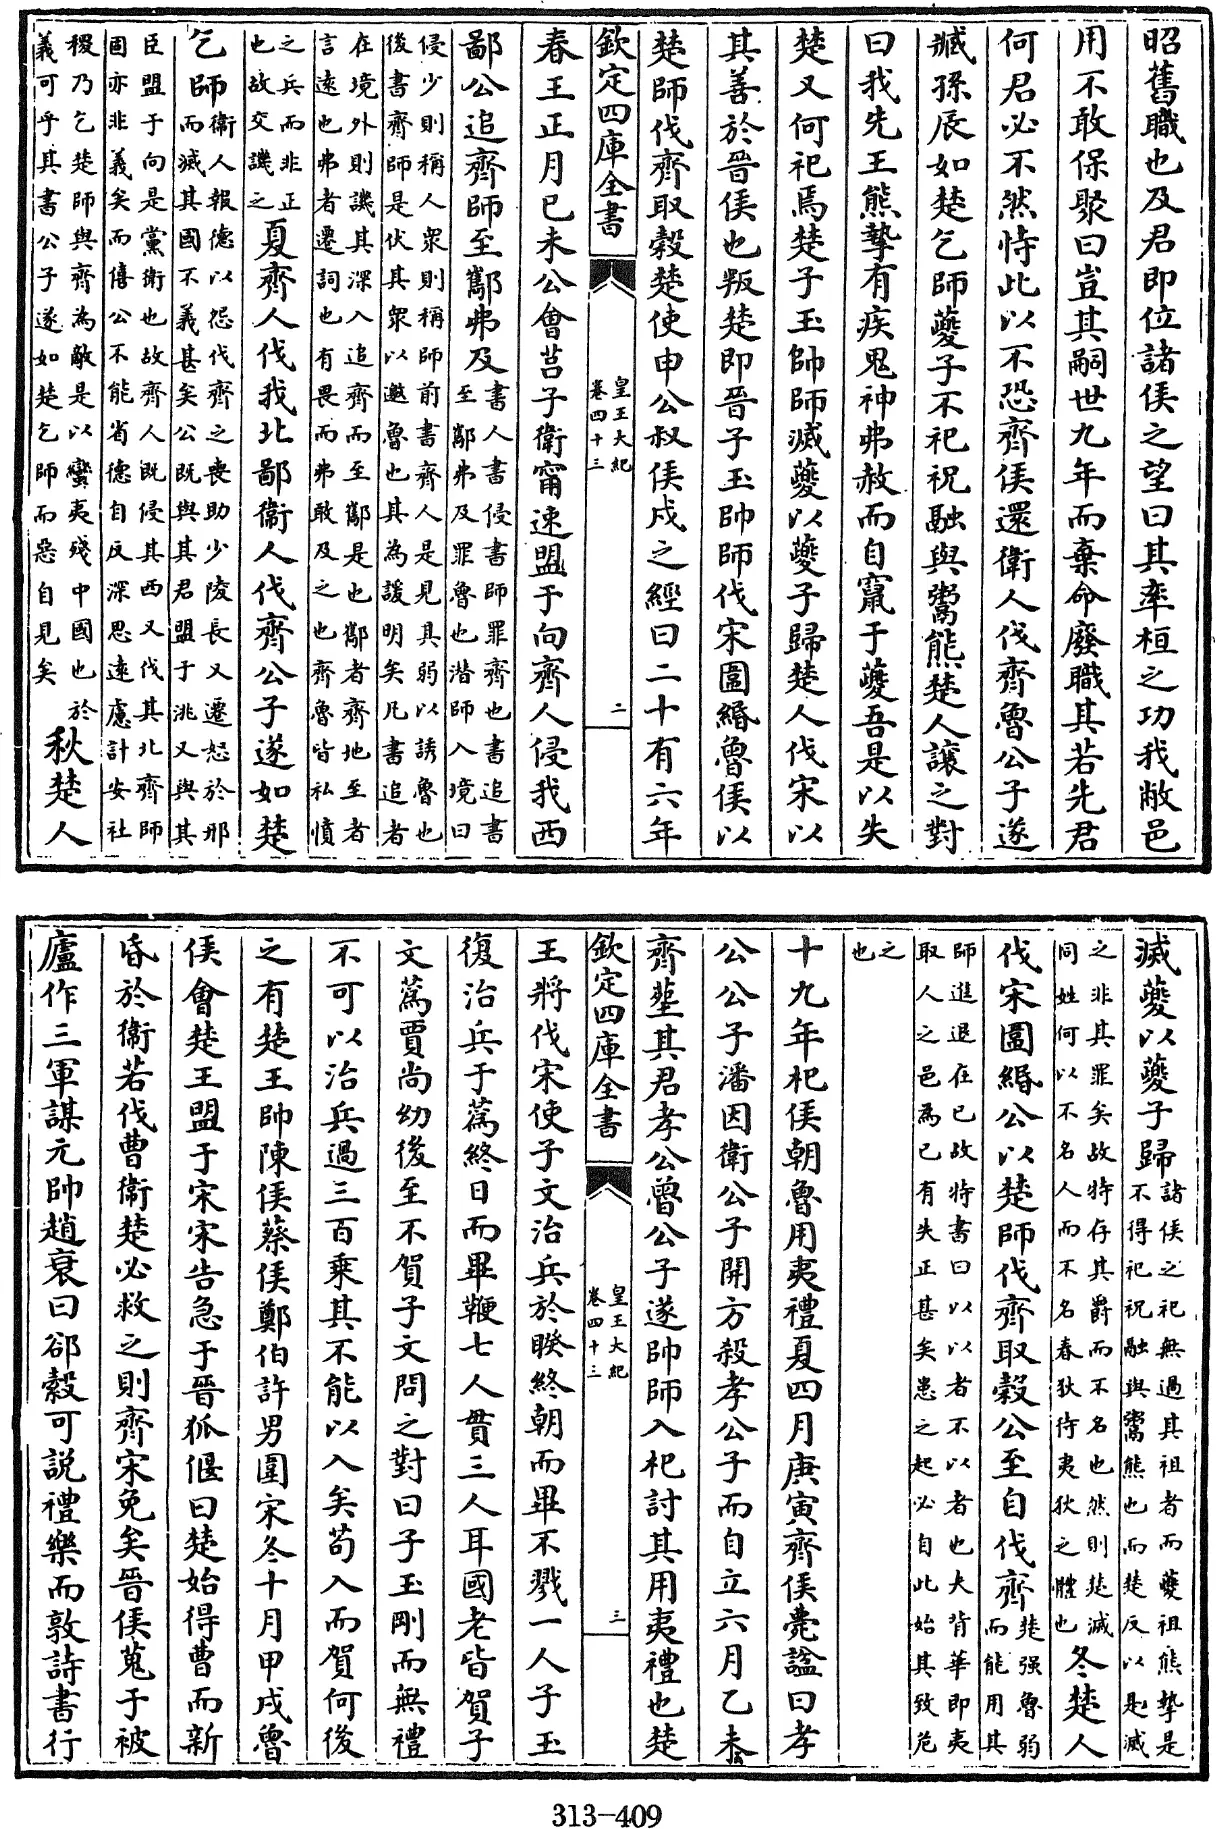 昭舊職也及君即位諸侯之望曰其率桓之功我敝邑
用不敢保聚曰豈其嗣世九年而棄命廢職其若先君
何君必不然恃此以不恐齊侯還衛人伐齊魯公子遂
臧孫辰如楚乞師夔子不祀祝融與鬻熊楚人讓之對
曰我先王熊摯有疾鬼神弗赦而自竄于夔吾是以失
楚又何祀焉楚子玉帥師滅夔以夔子歸楚人伐宋以
其善於晉侯也叛楚即晉子玉帥師伐宋圍緡魯侯以
楚師伐齊取穀楚使申公叔侯戍之經曰二十有六年
欽定四庫全書
皇王大紀
卷四十三
二
春王正月已未公會莒子衛甯速盟于向齊人侵我西
鄙公追齊師至酅弗及
書人書侵書師罪齊也書追書
至酅弗及罪魯也潛師入境曰
侵少則稱人衆則稱師前書齊人是見其弱以誘魯也
後書齊師是伏其衆以邀魯也其為諼明矣凡書追者
在境外則譏其深入追齊而至酅是也酅者齊地至者
言遠也弗者遷詞也有畏而弗敢及之也齊魯皆私憤
之兵而非正
也故交譏之
夏齊人伐我北鄙衞人伐齊公子遂如楚
乞師
衛人報德以怨伐齊之喪助少陵長又遷怒於邢
而滅其國不義甚矣公既與其君盟于洮又與其
臣盟于向是黨衛也故齊人既侵其西又伐其北齊師
固亦非義矣而僖公不能省德自反深思遠慮計安社
稷乃乞楚師與齊為敵是以蠻夷殘中國也於
義可乎其書公子遂如楚乞師而惡自見矣
秋楚人
滅夔以夔子歸
諸侯之祀無過其祖者而夔祖熊摯是
不得祀祝融與鬻熊也而楚反以是滅
之非其罪矣故特存其爵而不名也然則楚滅
同姓何以不名人而不名春狄待夷狄之體也
冬楚人
伐宋圍緡公以楚師伐齊取穀公至自伐齊
楚强魯弱
而能用其
師進退在已故特書曰以以者不以者也夫背華即夷
取人之邑為已有失正甚矣患之起必自此始其致危
之
也
十九年杞侯朝魯用夷禮夏四月庚寅齊侯薨諡曰孝
公公子潘因衛公子開方殺孝公子而自立六月乙未
齊塟其君孝公魯公子遂帥師入杞討其用夷禮也楚
欽定四庫全書
皇王大紀
卷四十三
三
王將伐宋使子文治兵於睽終朝而畢不戮一人子玉
復治兵于蒍終日而畢鞭七人貫三人耳國老皆賀子
文蒍賈尚幼後至不賀子文問之對曰子玉剛而無禮
不可以治兵過三百乘其不能以入矣苟入而賀何後
之有楚王帥陳侯蔡侯鄭伯許男圍宋冬十月甲戌魯
侯會楚王盟于宋宋告急于晉狐偃曰楚始得曹而新
昏於衛若伐曹衛楚必救之則齊宋免矣晉侯蒐于被
廬作三軍謀元帥趙衰曰郤縠可說禮樂而敦詩書行
313-409